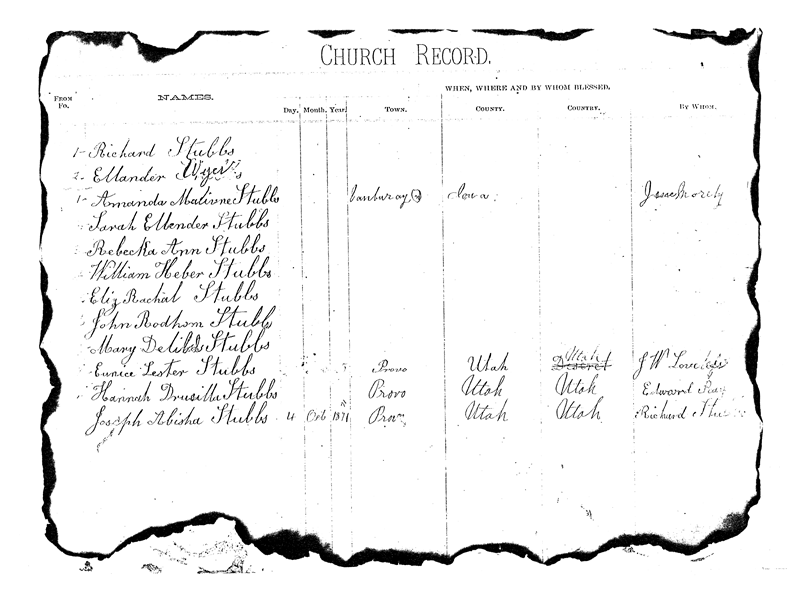 CHURCH RECORD.
WHEN, WHERE AND BY WHOM BLESSED.
FROM FO. NAMES. Day. Month. Year. TOWN. COUNTY. COUNTRY. BY WHOM.
1- Richard Stubbs
2- Ellander
1- Amanda Malivne Stubbs Iowa
Sarah Ellender Stubbs
Rebecka Ann Stubbs
William Heber Stubbs
Eliz Rachal Stubbs
John Rodhom Stubbs
Mary Stubbs
Eunice Lester Stubbs Provo Utah Deseret Utah J W
Hannah Drusilla Stubbs Provo Utah Utah Edward
Joseph Abisha Stubbs 4 Oct 1871 Utah Utah Richard